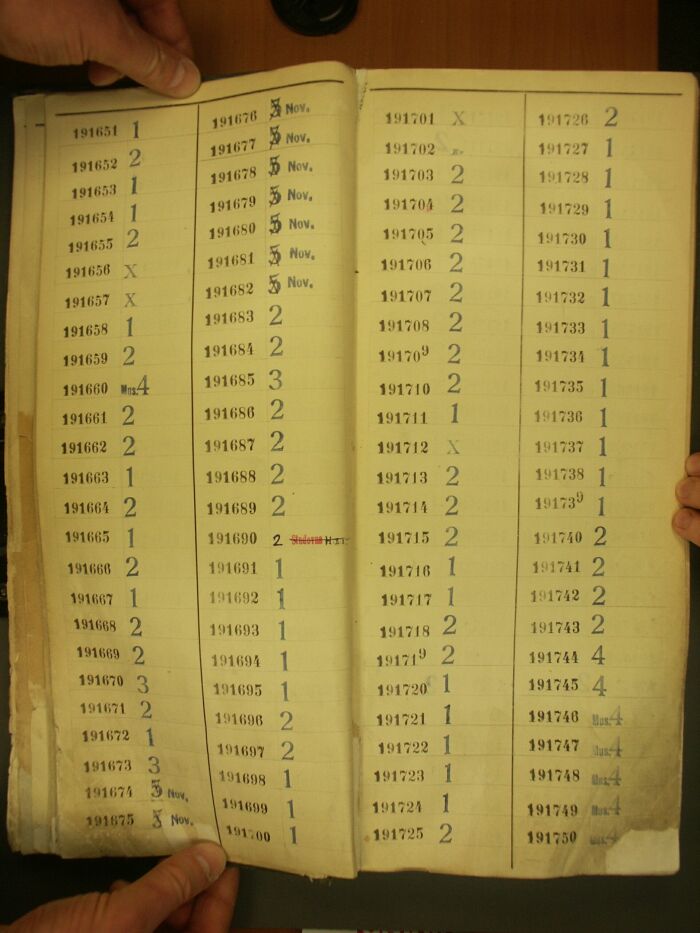 191651 1
191652 2
191653 1
191654 1
191655 2
191656 X
191657 X
191658 1
191659 2
191660 Mus.4
191661 2
191662 2
191663 1
191664 2
191665 1
191666 2
191667 1
191668 2
191669 2
191670 3
191671 2
191672 1
191673 3
191674 5 Nov.
191675 5 Nov.
191676 5 Nov.
191677 5 Nov.
191678 5 Nov.
191679 5 Nov.
191680 5 Nov.
191681 5 Nov.
191682 5 Nov.
191683 2
191684 2
191685 3
191686 2
191687 2
191688 2
191689 2
191690 2 Studovna
191691 1
191692 1
191693 1
191694 1
191695 1
191696 2
191697 2
191698 1
191699 1
191700 1
191701 X
191702
191703 2
191704 2
191705 2
191706 2
191707 2
191708 2
191709 2
191710 2
191711 1
191712 X
191713 2
191714 2
191715 2
191716 1
191717 1
191718 2
191719 2
191720 1
191721 1
191722 1
191723 1
191724 1
191725 2
191726 2
191727 1
191728 1
191729 1
191730 1
191731 1
191732 1
191733 1
191734 1
191735 1
191736 1
191737 1
191738 1
191739 1
191740 2
191741 2
191742 2
191743 2
191744 4
191745 4
191746 Mus.4
191747 Mus.4
191748 Mus.4
191749 Mus.4
191750 Mus.4